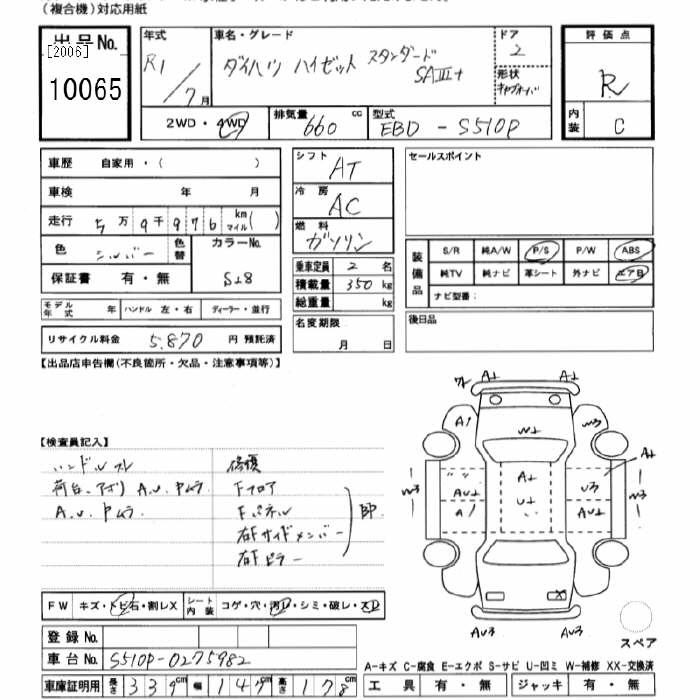 (複合機)対応用紙
出品No.
[2006]
10065
年式
R1/7月
車名・グレード
ダイハツ ハイゼット スタンダード
SAⅢt
ドア
2
形状
キャブオーバ
評価点
R
内装
C
2WD・4WD
排気量 660 cc
型式 EBD-S510P
車歴 自家用・( )
車検 年 月
走行 5万9千976 km マイル( )
色 シルバー
色替
カラーNo.
S28
保証書 有・無
モデル年式 年 ハンドル 左・右 ディーラー・並行
リサイクル料金 5,870 円 預託済
シフト
AT
冷房
AC
燃料
ガソリン
乗車定員 2 名
積載量 350 kg
総重量 kg
名変期限
月 日
セールスポイント
装備品
S/R 純A/W P/S P/W ABS
純TV 純ナビ 革シート 外ナビ エアB
ナビ型番:
後日品
【出品店申告欄(不良箇所・欠品・注意事項等)】
【検査員記入】
ハンドルスレ
荷台、アオリ A.U.Pムラ
A.U.Pムラ
修復
Fフロア
Fパネル
右Fサイドメンバー
右Fピラー
即
A2 A2
A1 W2 W3
A2
W3 A2 W3 W3
AU2 U2 AU2
A1
X
AU3 AU3
スペア
FW キズ・トビ石・割レX
シート内装 コゲ・穴・汚レ・シミ・破レ・スレ
登録No.
車台No. S510P-0275982
車庫証明用 長さ 339cm 幅 147cm 高さ 178cm
A-キズ C-腐食 E-エクボ S-サビ U-凹ミ W-補修 XX-交換済
工具 有・無 ジャッキ 有・無